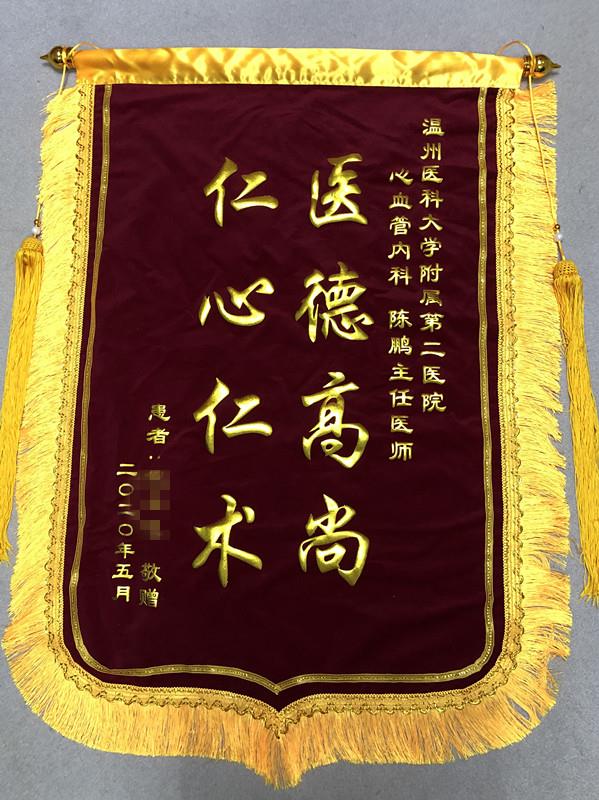 温州医科大学附属第二医院
心血管内科 陈鹏主任医师
医德高尚
仁心仁术
患者: 敬赠
二〇二〇年五月